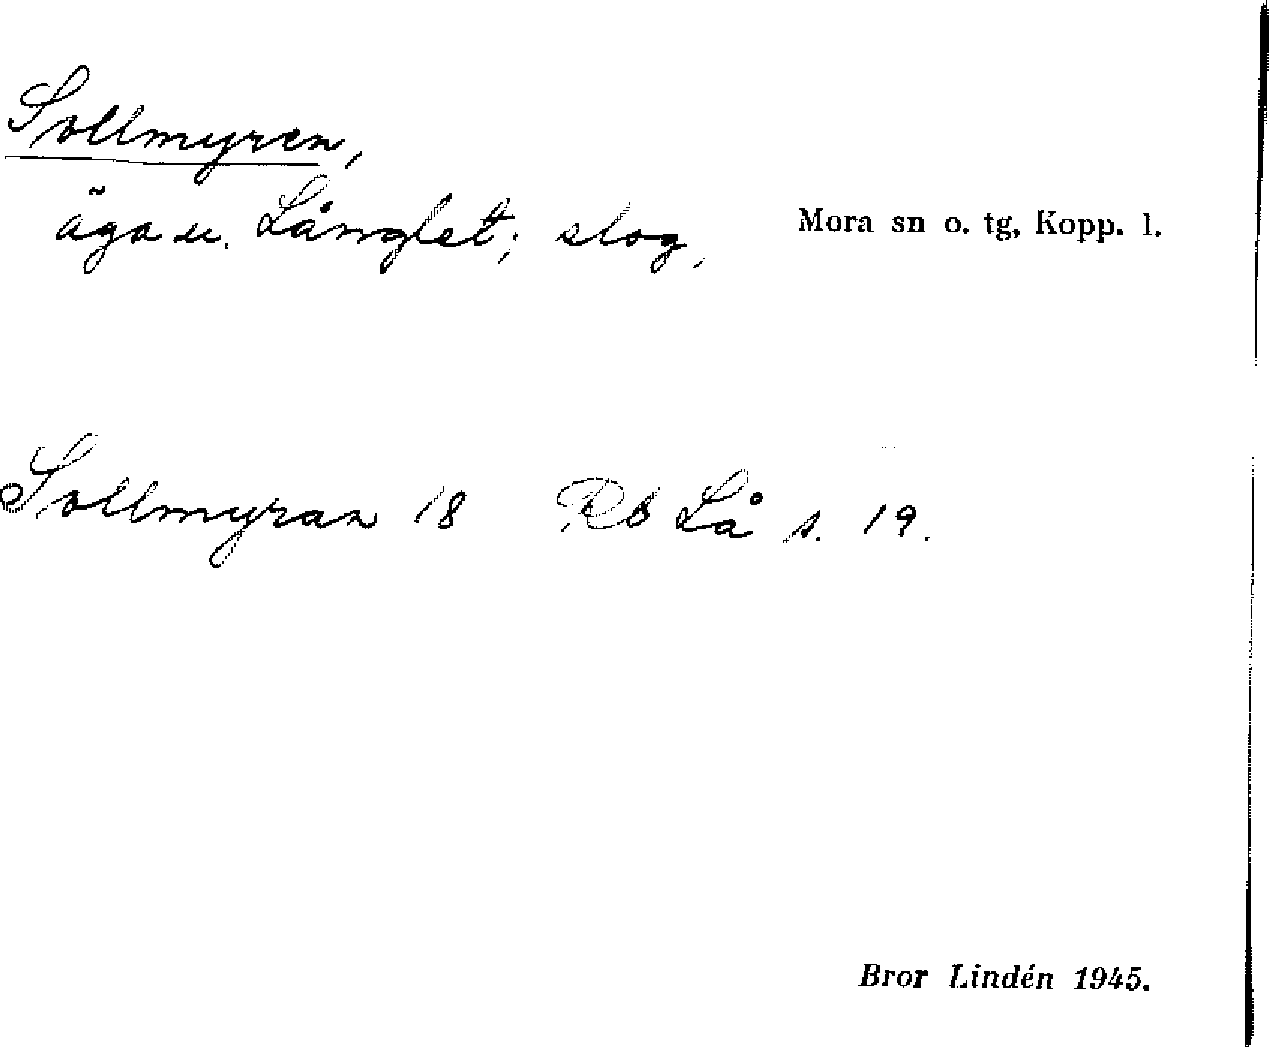 Sollmyren,
äga u. Långlet; slog,
Mora sn o. tg, Kopp. l.
Sollmyran 18 Rb Lå s. 19.
Bror Lindén 1945.